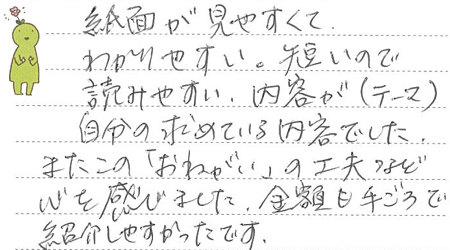 紙面が見やすくて
わかりやすい。短いので
読みやすい。内容が(テーマ)
自分の求めている内容でした。
またこの「おねがい」の工夫など
心を感じました。金額も手ごろで
紹介しやすかったです。